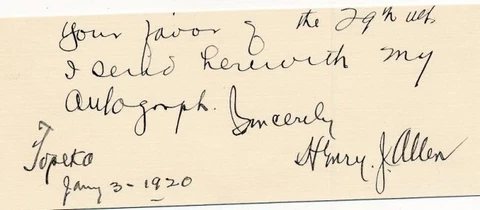 Your favor of the 29th ult.
I send herewith my
autograph. Sincerely
Henry. J. Allen
Topeka
Jany 3 - 1920